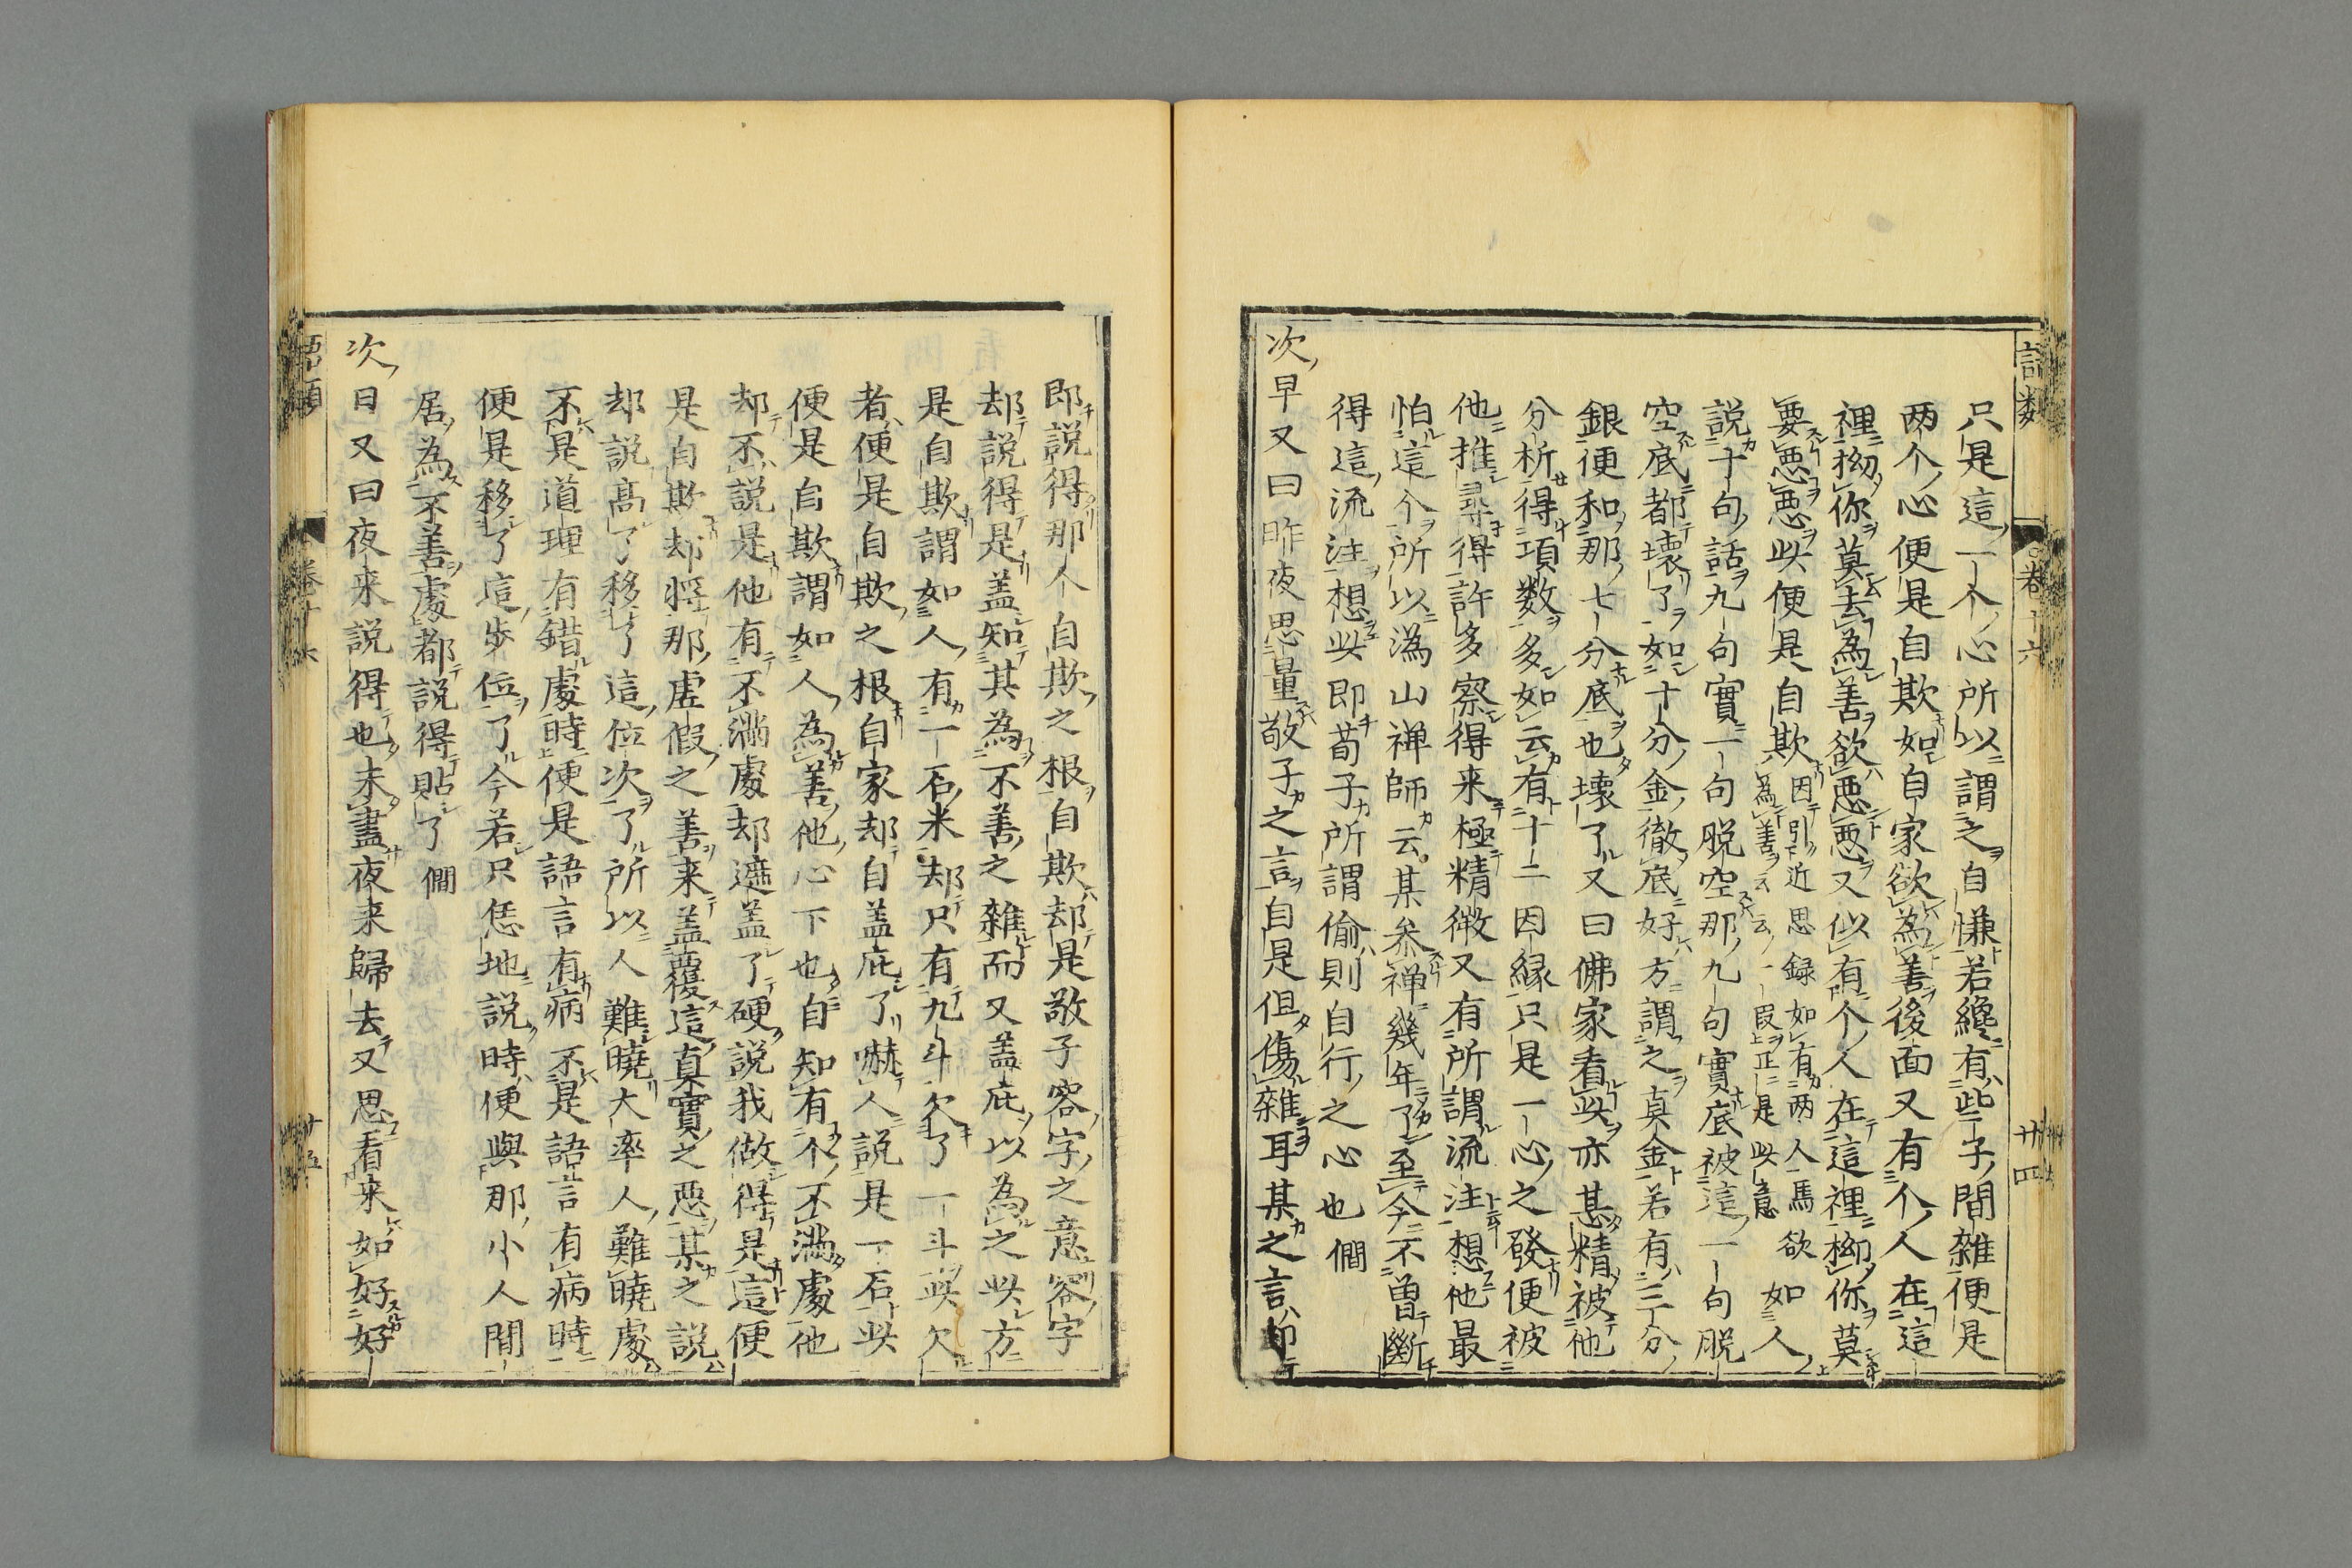 語類 卷十六 廿四
只是這一个心所以謂之自慊若纔有些子間雜便是
两个心便是自欺如自家欲為善後面又有个人在這
裡拗你莫去為善欲惡惡又似有个人在這裡拗你莫
要惡惡此便是自欺因引近思録如有两人焉欲如人
為善云云一段正是此意
說十句話九句實一句脱空那九句實底被這一句脱
空底都壊了如十分金徹底好方謂之真金若有三分
銀便和那七分底也壊了又曰佛家看此亦甚精被他
分析得項数多如云有十二因縁只是一心之發便被
他推尋得許多察得来極精微又有所謂流注想他最
怕這个所以潙山禅師云某参禅幾年了至今不曽斷
得這流注想此即荀子所謂偷則自行之心也僩
次早又曰昨夜思量敬子之言自是但傷雜耳某之言却
即説得那个自欺之根自欺却是敬子容字之意容字
却説得是盖知其為不善之雜而又盖庇以為之此方
是自欺謂如人有一石米却只有九斗欠了一斗此欠
者便是自欺之根自家却自盖庇了嚇人説是一石此
便是自欺謂如人為善他心下也自知有个不滿處他
却不説是他有不滿處却遮盖了硬説我做得是這便
是自欺却将那虚假之善来盖覆這真實之惡某之説
却説高了移了這位次了所以人難曉大率人難曉處
不是道理有錯處時便是語言有病不是語言有病時
便是移了這步位了今若只恁地説時便與那小人閒
居為不善處都説得貼了僩
次日又曰夜来説得也未盡夜来歸去又思看来如好好
語類 卷十六 廿五